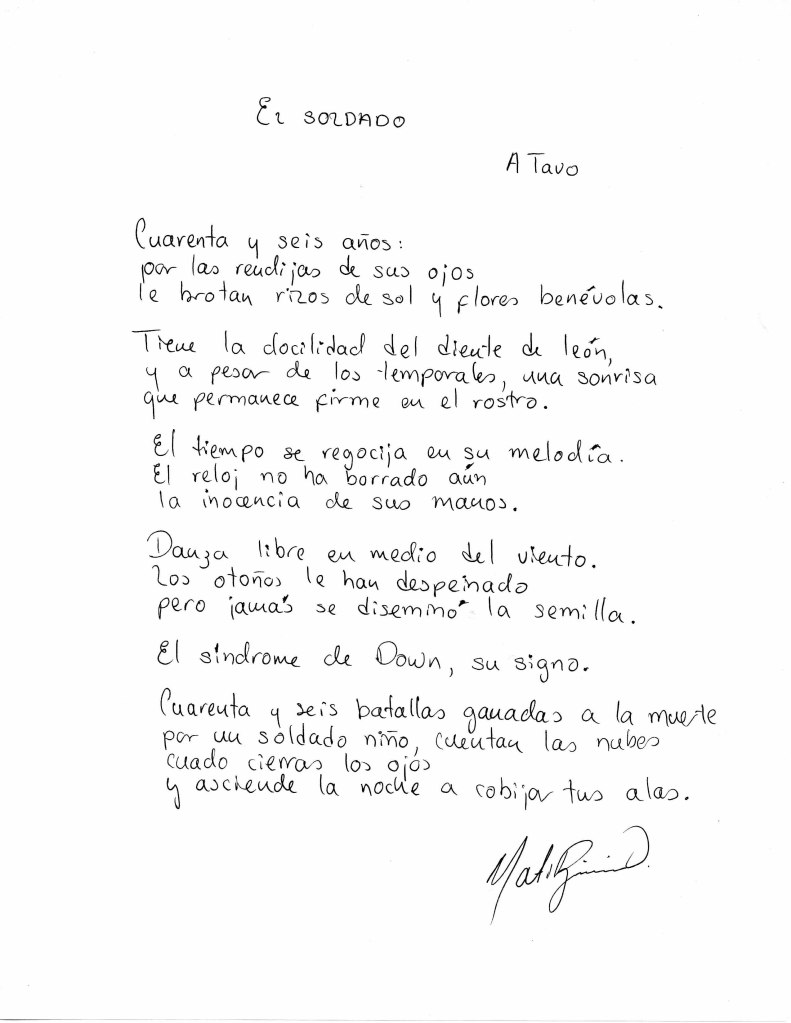 El SOLDADO
A Tavo
Cuarenta y seis años:
por las rendijas de sus ojos
le brotan rizos de sol y flores benévolas.
Tiene la docilidad del diente de león,
y a pesar de los temporales, una sonrisa
que permanece firme en el rostro.
El tiempo se regocija en su melodía.
El reloj no ha borrado aún
la inocencia de sus manos.
Danza libre en medio del viento.
Los otoños le han despeinado
pero jamás se diseminó la semilla.
El síndrome de Down, su signo.
Cuarenta y seis batallas ganadas a la muerte
por un soldado niño, cuentan las nubes
cuado cierras los ojos
y asciende la noche a cobijar tus alas.